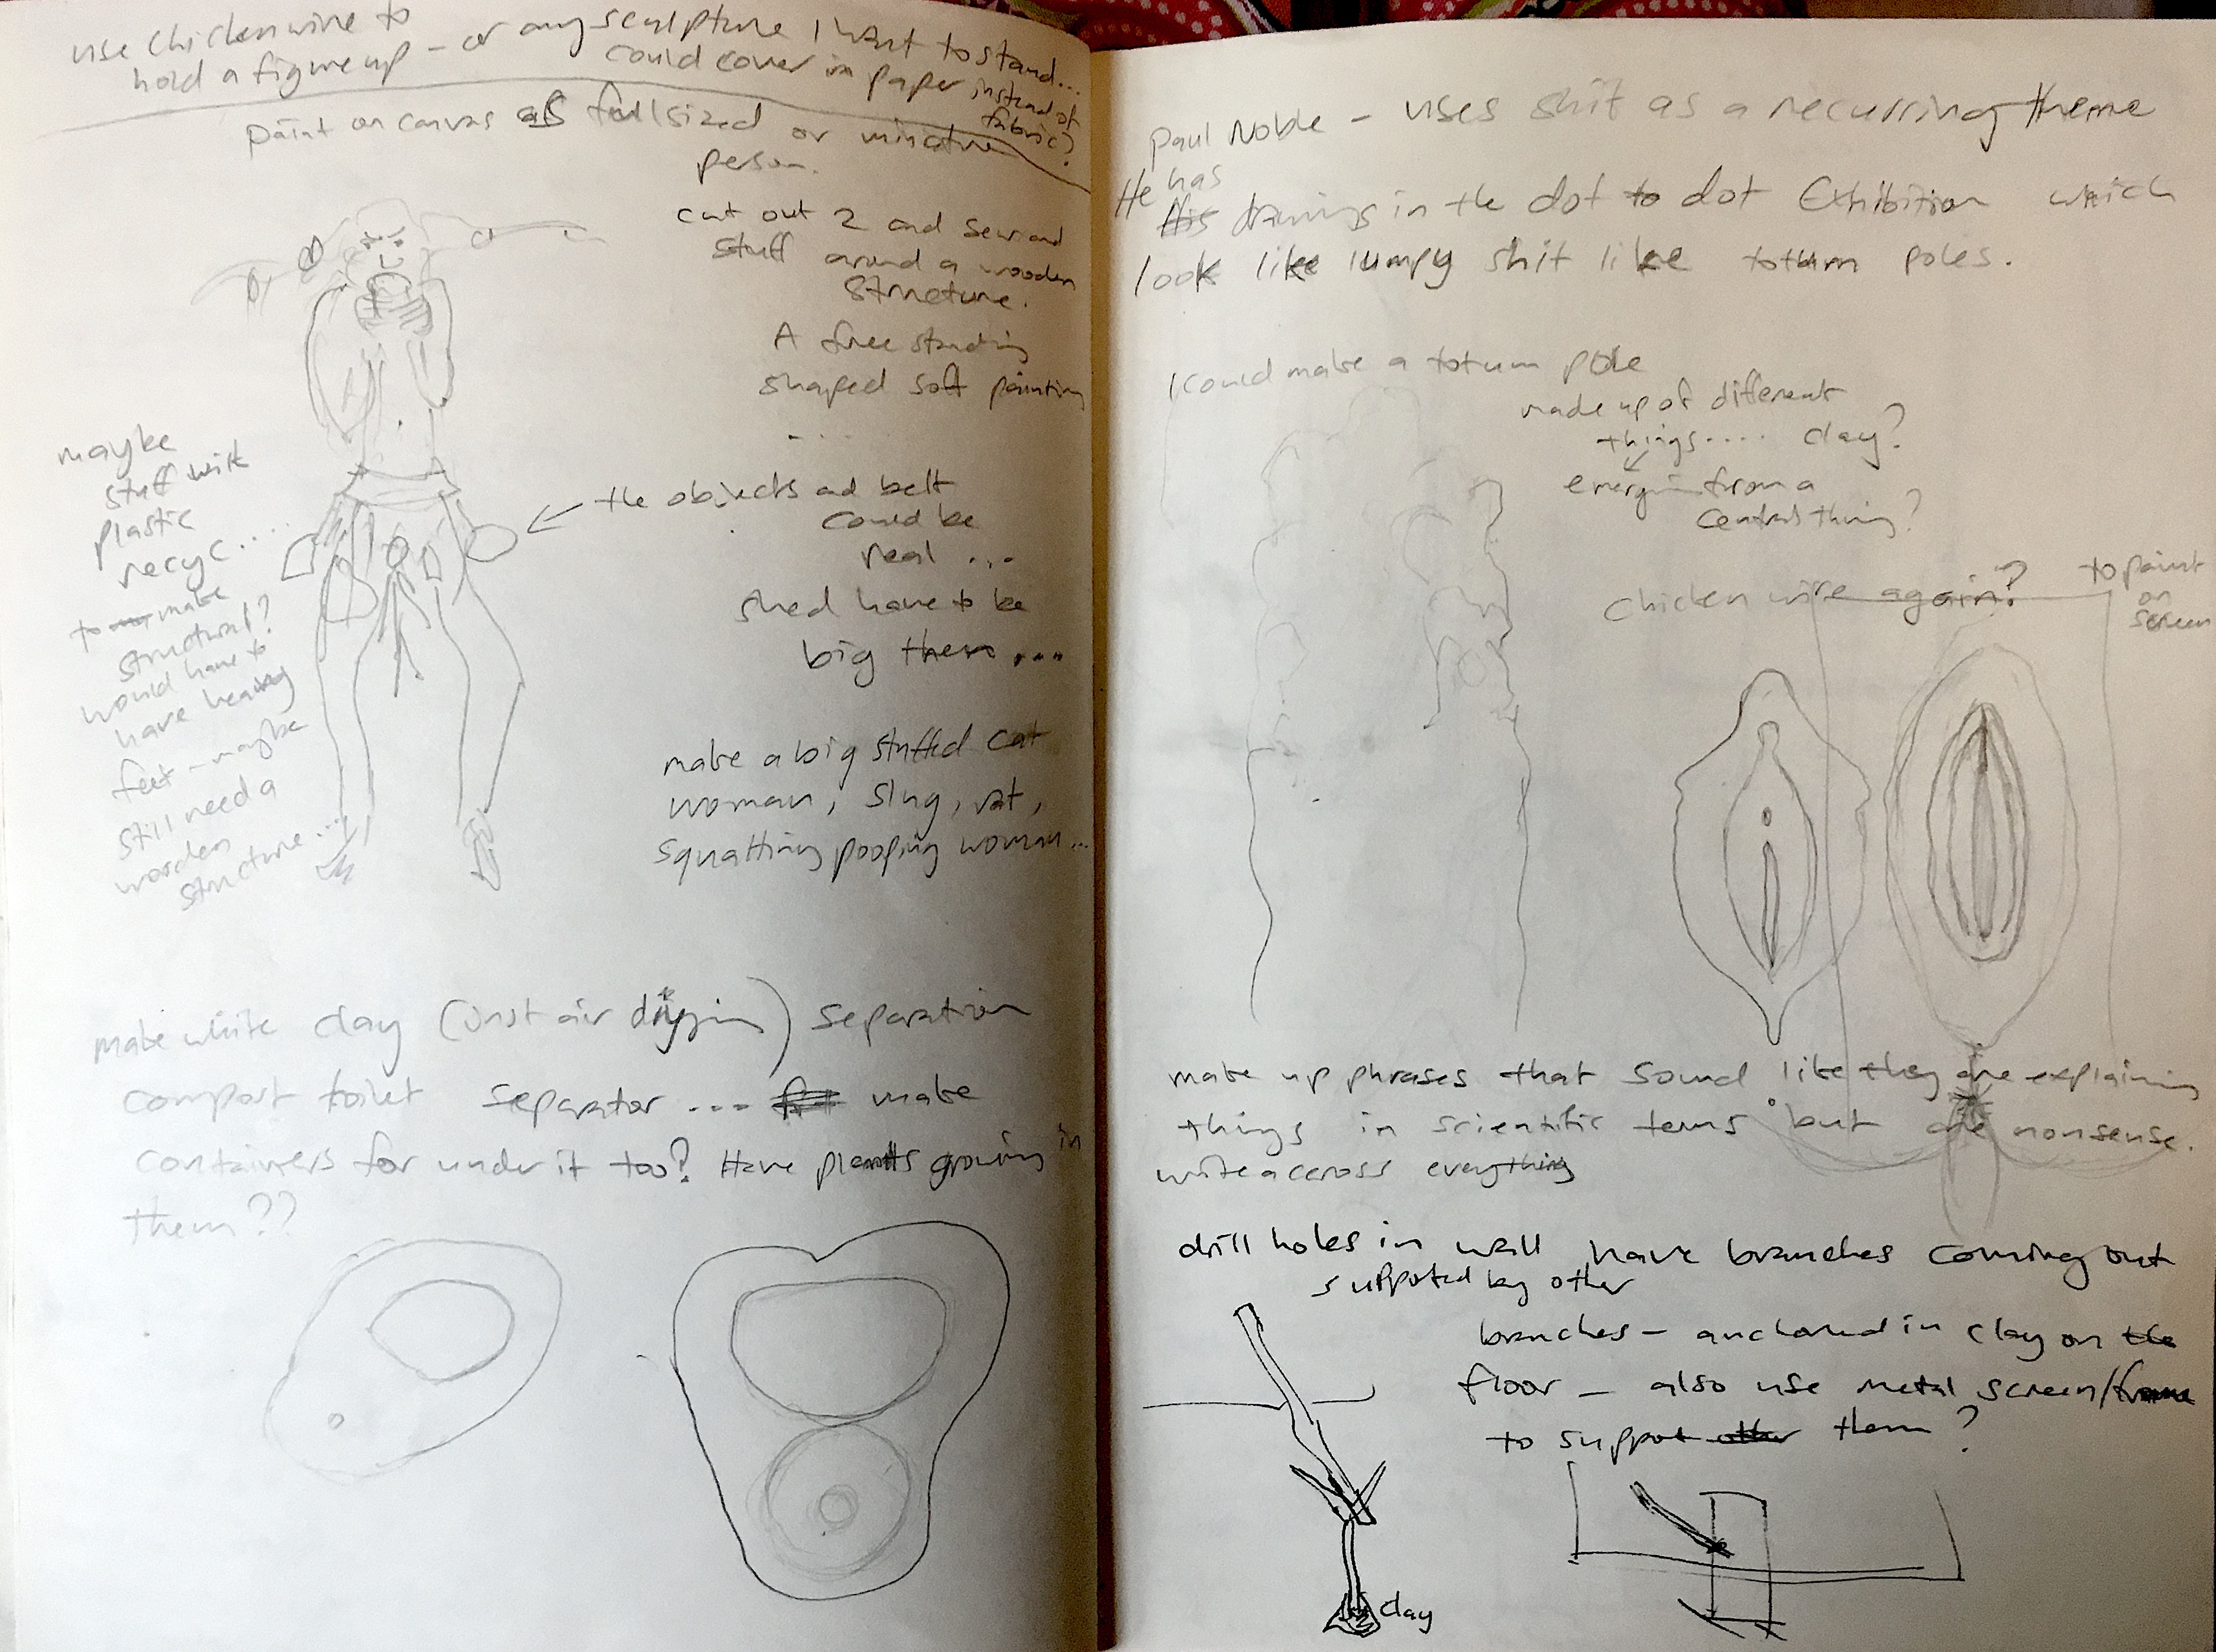 use chicken wire to
hold a figure up - or any sculpture I want to stand...
could cover in paper instead of
fabric?
paint on canvas a full sized or minature
person.
cut out 2 and sew and
stuff around a wooden
structure.
A free standing
shaped soft painting
....
maybe
stuff with
plastic
recyc...
to make
structural?
would have to
have heavy
feet - maybe
still need a
wooden
structure...
the objects and belt
could be
real ...
shed have to be
big then ...
make a big stuffed cat
woman, slug, rat,
squatting pooping woman...
make white clay (just air drying) separation
compost toilet separator ... make
containers for under it too? Have plants growing in
them??
Paul Noble - uses shit as a recurring theme
He has drawings in the dot to dot Exhibition which
look like lumpy shit like totum poles.
I could make a totum pole
made up of different
things.... clay?
emerging from a
central thing?
chicken wire again?
to paint
on
screen
make up phrases that sound like they are explaining
things in scientific terms but are nonsense.
write accross everything
drill holes in wall have branches coming out
supported by other
branches - anchored in clay on the
floor - also use metal screen/frame
to support them?
clay